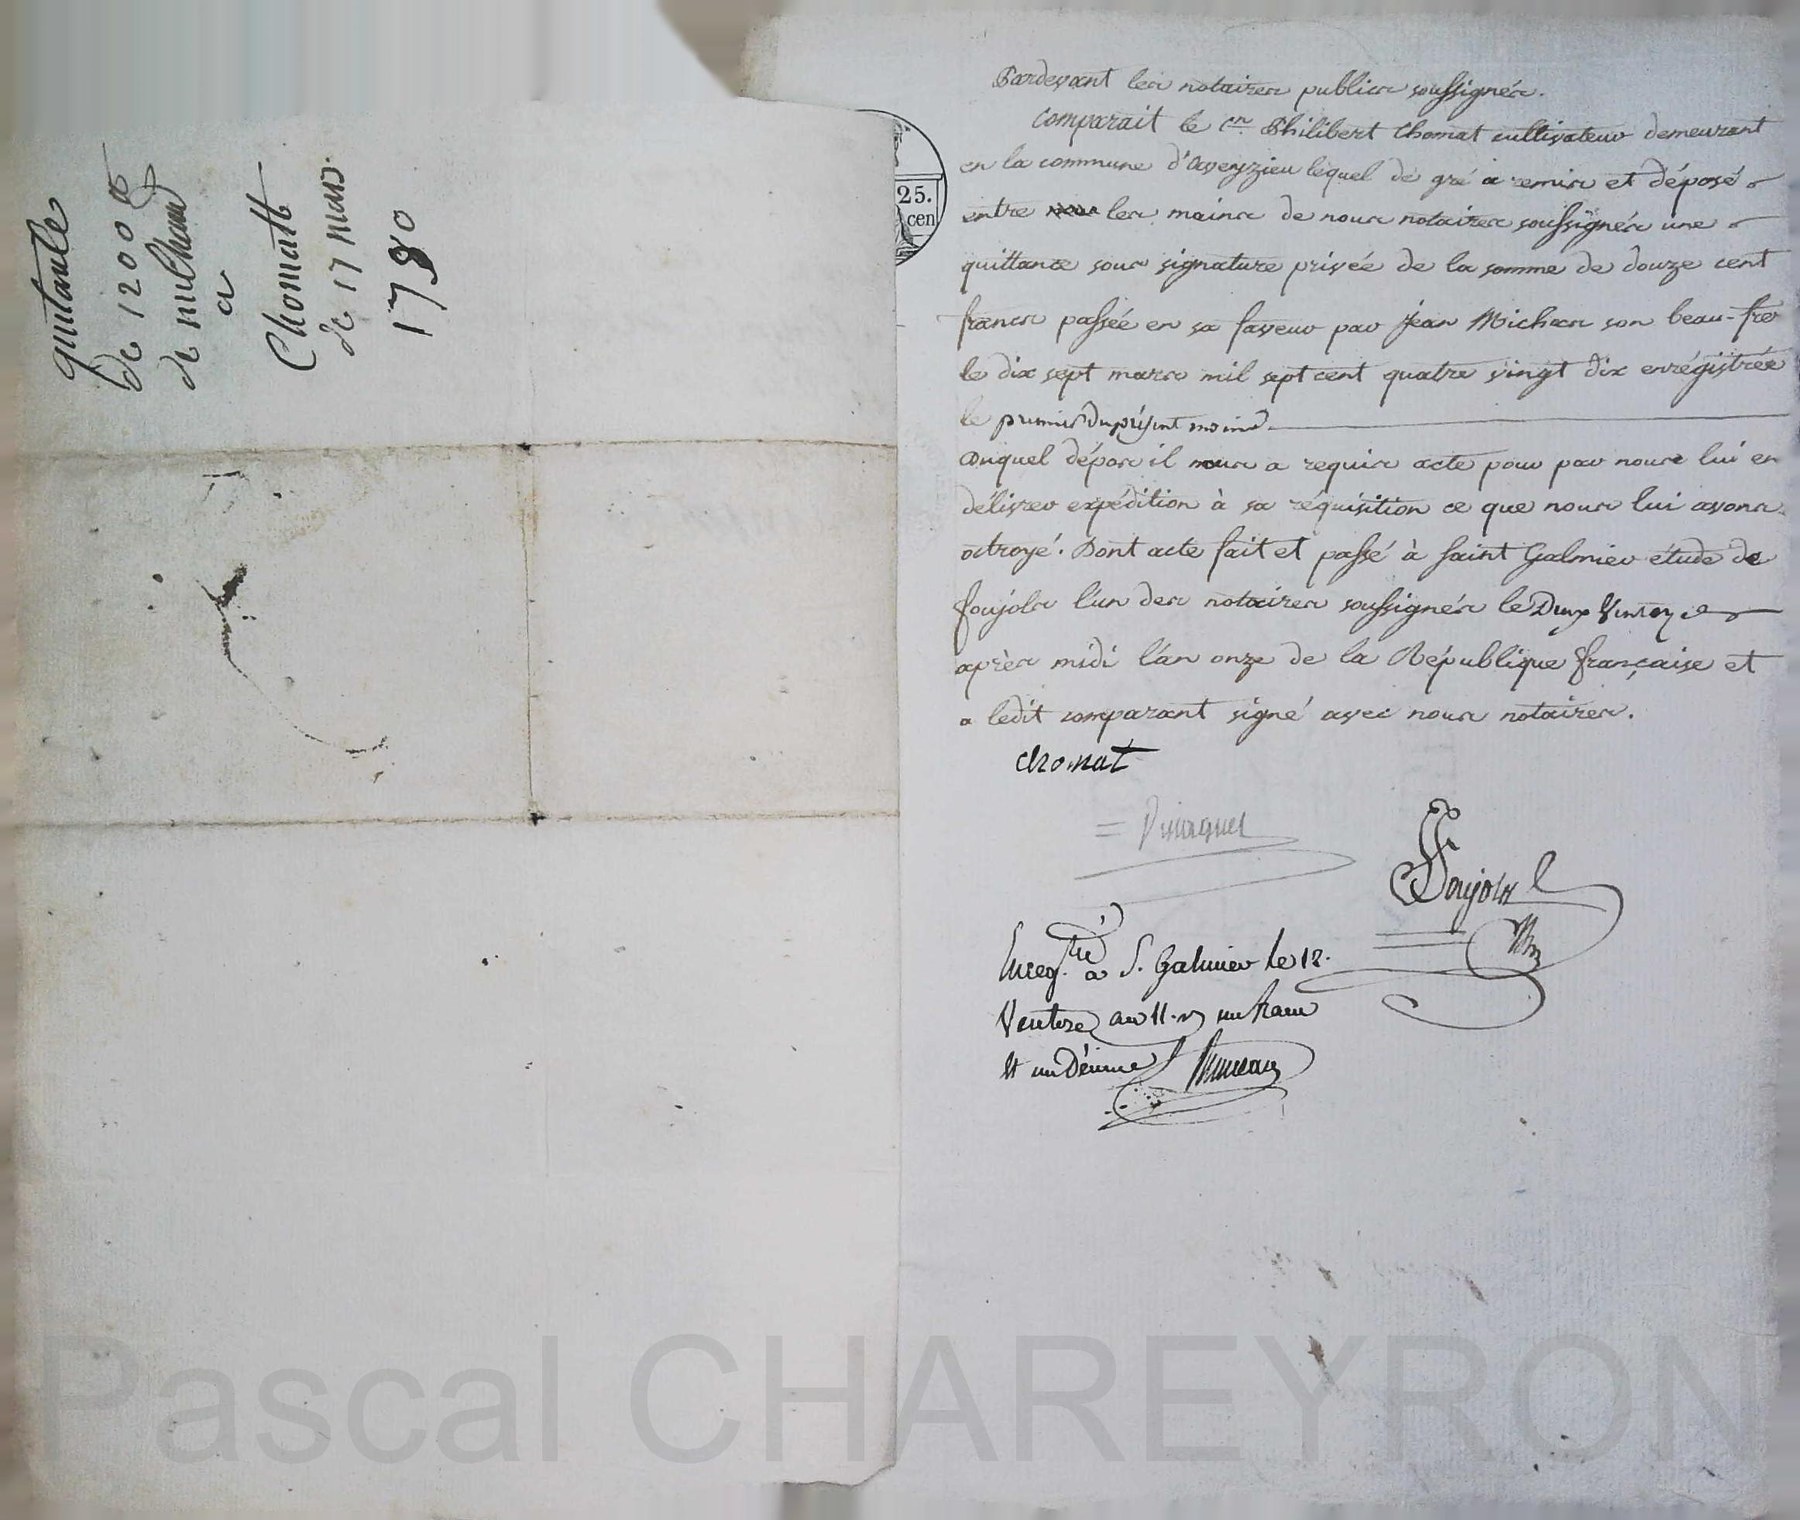 quitance
de 1200 lt
de michaud
a
Chomatt
de 17 mars
1790
25.
cen
Pardevant les notaires publics soussignés.
Comparait le Cn. Philibert Chomat cultivateur demeurant
en la commune d'aveyzieu lequel de gré a remis et déposé
entre les mains de nous notaires soussignés une
quittance sous signature privée de la somme de douze cent
francs passée en sa faveur par Jean Michea son beau-fre
le dix sept mars mil sept cent quatre vingt dix enrégistrée
le premier du présent mois
Duquel dépos il nous a requis acte pour par nous lui en
délivrer expédition à sa réquisition ce que nous lui avons
octroyé. Dont acte fait et passé à Saint Galmier étude de
Foujols l'un des notaires soussignés le Deux Ventoze
après midi l'an onze de la République française et
a ledit comparant signé avec nous notaires.
chomat
Foujols
Enreg.tré à S. Galmier le 12.
Ventose an 11. un franc
et un Décime
Pascal CHAREYRON